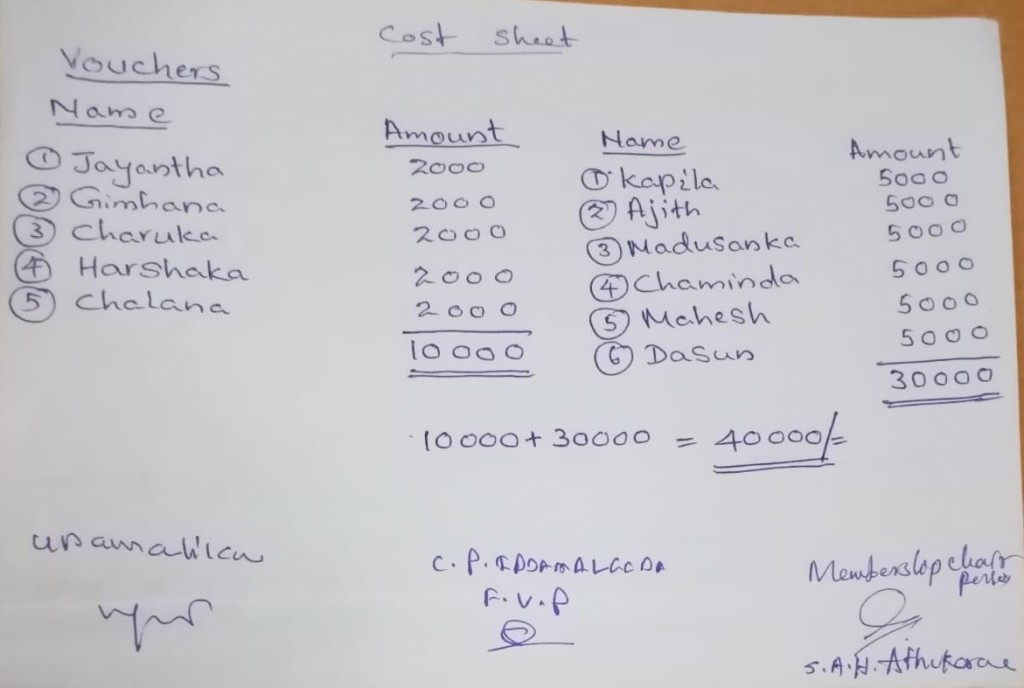 Cost Sheet
Vouchers
Name Amount
① Jayantha 2000
② Gimhana 2000
③ Charuka 2000
④ Harshaka 2000
⑤ Chalana 2000
10000
Name Amount
① Kapila 5000
② Ajith 5000
③ Madusanka 5000
④ Chaminda 5000
⑤ Mahesh 5000
⑥ Dasun 5000
30000
10000 + 30000 = 40000/=
C. P. IDDAMALGODA
F.V.P
Membership chair
person
S.A.H. Athukorale